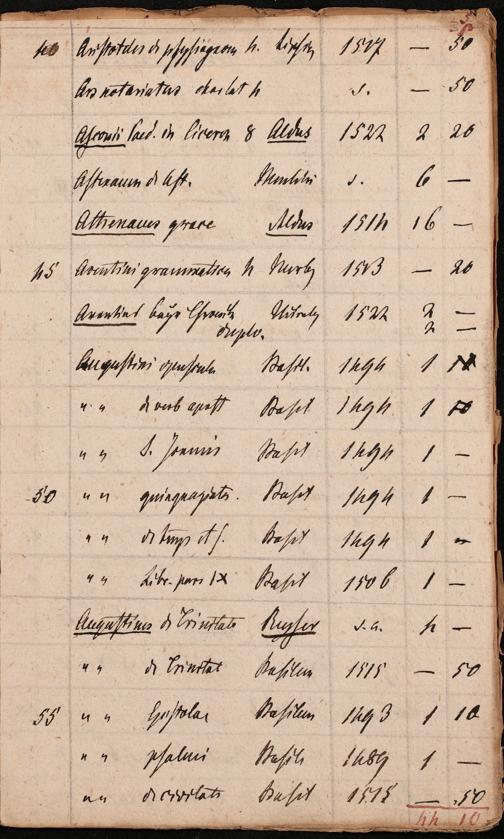 40 Aristoteles di physiognom h. Lipsia 1517 — 50
Ars notariatus s. — 50
Asconii Paed. in Ciceron 8 Aldus 1522 2 20
s. 6 —
Athenaeus graece Aldus 1514 16 —
45 Aventini grammatica h Nurbg 1513 — 20
Aventini bayr Chronik 1522 2 —
duplo. 2 —
Augustini opuscula Basil. 1494 1
" " de verb apost Basil 1494 1
" " S. Joannis Basil 1494 1 —
50 " " quinquagiata. Basil 1494 1 —
" " de temp et s. Basil 1494 1 —
" " Libr. pars IX Basil 1506 1 —
Augustinus di Trinitate Rysser s.a. 4 —
" " di Trinitat Basileae 1515 — 50
55 " " Epistolae Basileae 1493 1 10
" " psalmi Basil 1489 1 —
" " de civitate Basil 1515 — 50
44 10